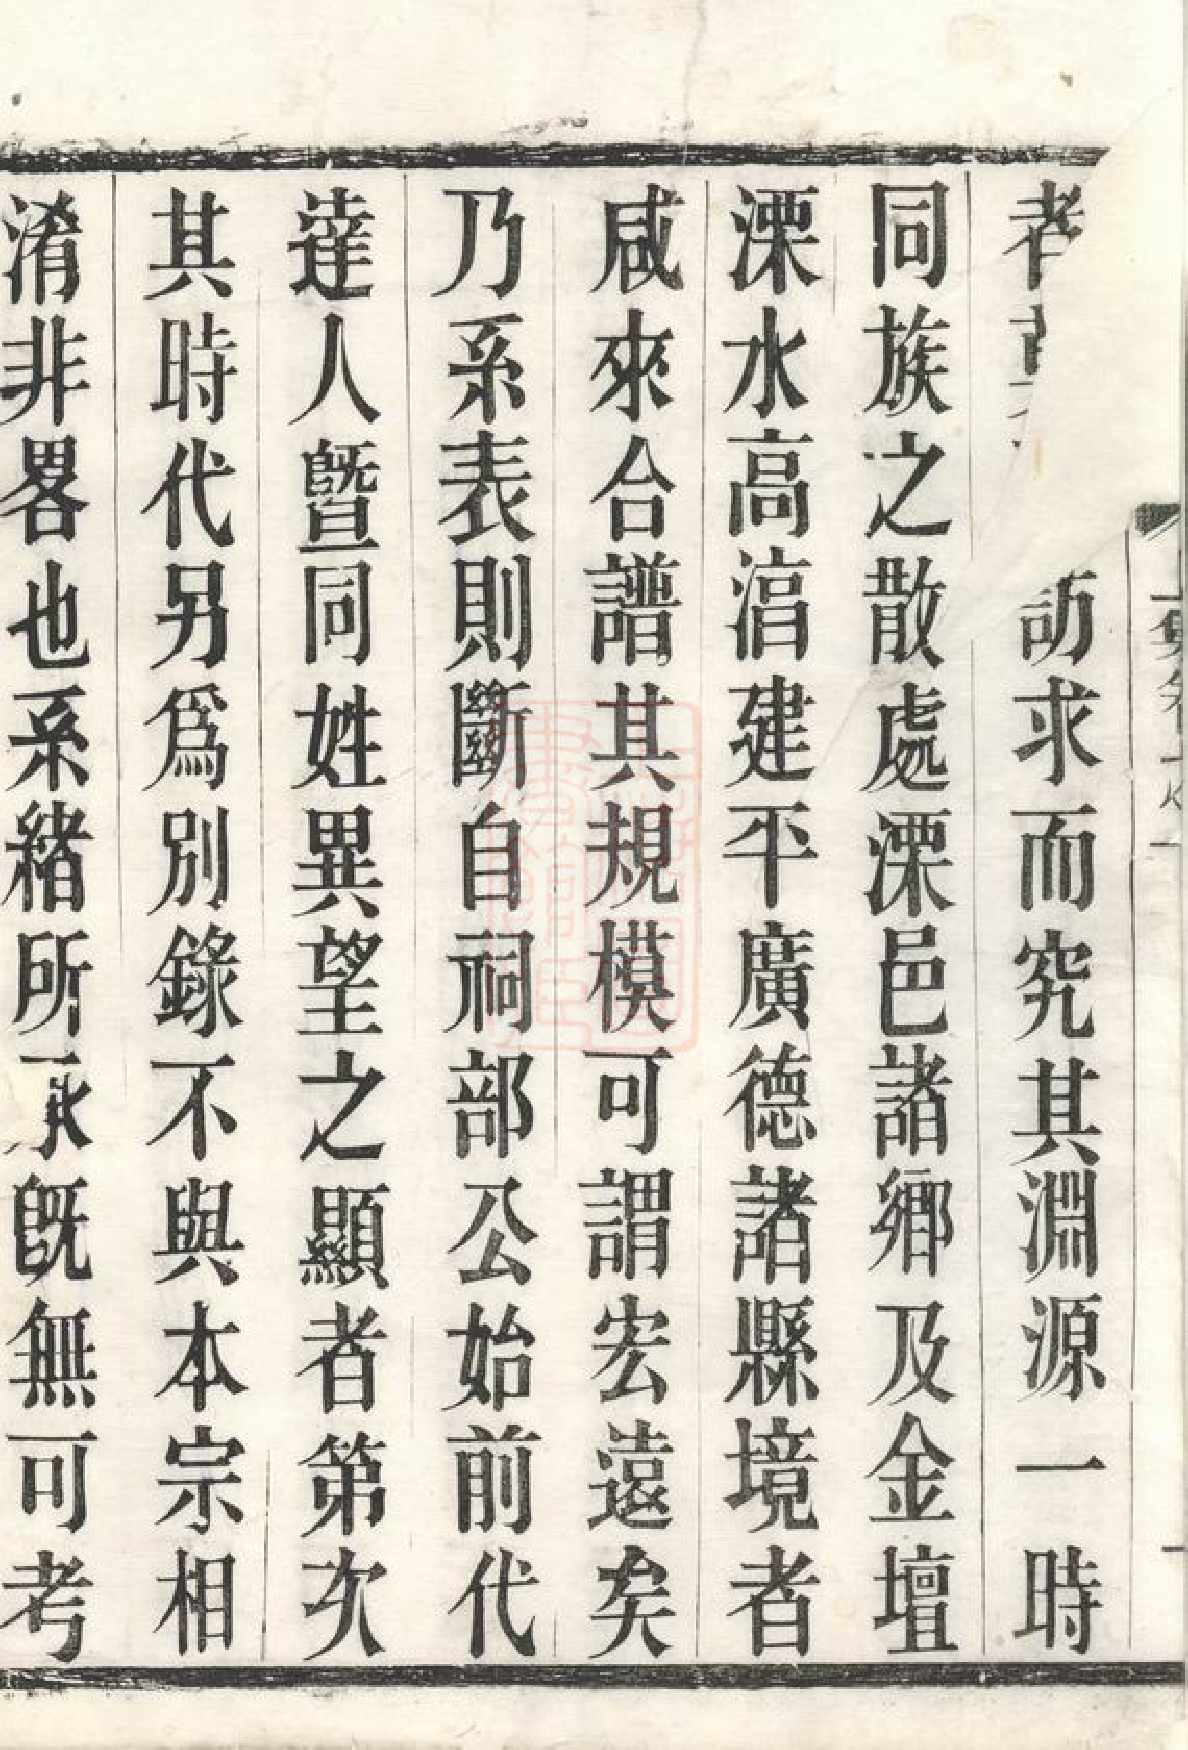 者訪求而究其淵源一時
同族之散處溧邑諸鄉及金壇
溧水高淳建平廣德諸縣境者
咸來合譜其規模可謂宏遠矣
乃系表則斷自祠部公始前代
達人曁同姓異望之顯者第次
其時代另爲別錄不與本宗相
淆非畧也系緒所承旣無可考